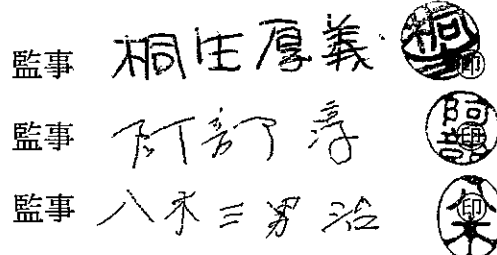 監事 桐生厚義 ㊞
監事 阿部淳 ㊞
監事 八木三男治 ㊞